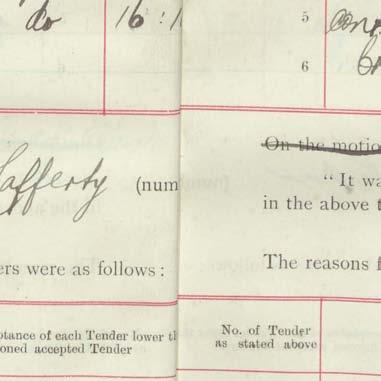 do 16
5
6
Lafferty (num
ers were as follows:
ptance of each Tender lower th
oned accepted Tender
On the motio
"It wa
in the above t
The reasons f
No. of Tender
as stated above